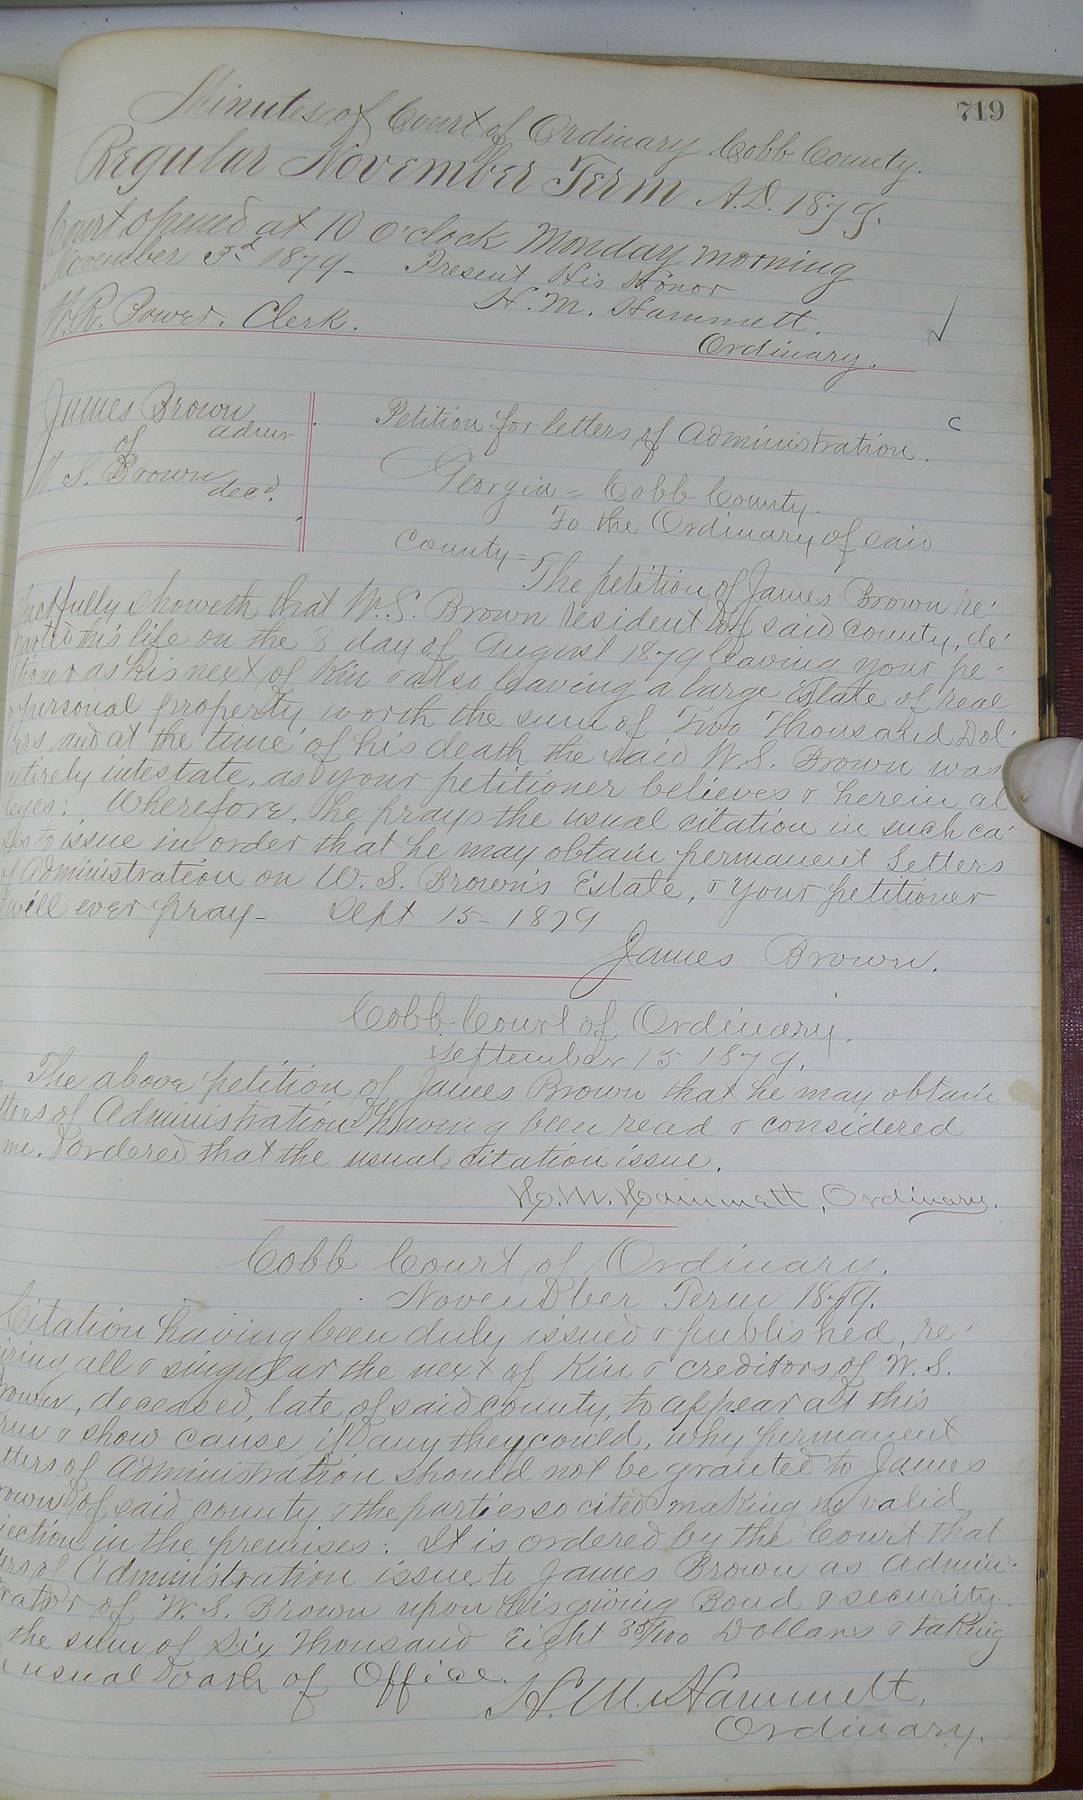 719
Minutes of Court of Ordinary Cobb County.
Regular November Term A.D. 1879.
Court opened at 10 o'clock Monday morning
November 3d 1879- Present His Honor
H. M. Hammett.
W. R. Power. Clerk.
Ordinary.
James Brown
admr
of
W. S. Brown
decd.
Petition for letters of Administration.
Georgia = Cobb County.
To the Ordinary of said
county = The petition of James Brown re-
pectfully showeth that W. S. Brown resident of said county, de-
parted this life on the 8 day of August 1879 leaving your pe-
titioner as his next of Kin & also leaving a large Estate of real
& personal property worth the sum of Two Thousand Dol-
lars and at the time of his death the said W. S. Brown was
entirely intestate, as your petitioner believes & herein al
leges: Wherefore, he prays the usual citation in such ca-
ses to issue in order that he may obtain permanent Letters
of Administration on W. S. Brown's Estate, & your petitioner
will ever pray- Sept 15- 1879
James Brown.
Cobb Court of Ordinary.
September 15 1879.
The above petition of James Brown that he may obtain
tters of Administration having been read & considered
me. ordered that the usual citation issue.
H. M. Hammett, Ordinary.
Cobb Court of Ordinary.
November Term 1879.
Citation having been duly issued & published, re-
iring all & singular the next of Kin & creditors of W. S.
rown, deceased, late of said county, to appear at this
rm & show cause if any they could, why permanent
tters of Administration should not be granted to James
rown of said county & the parties so cited making no valid
jection in the premises: It is ordered by the Court that
ters of Administration issue to James Brown as Admin-
trator of W. S. Brown upon his giving Bond & security
the sum of Six Thousand Eight 85/100 Dollars & taking
usual oath of Office.
H. M. Hammett,
Ordinary.